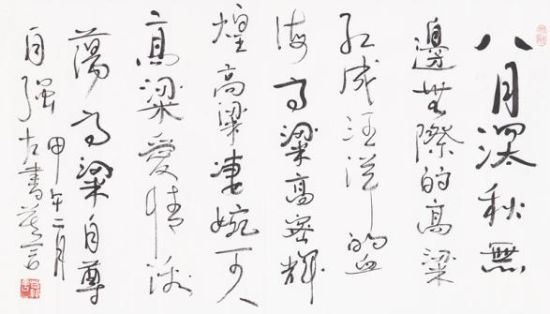 八月深秋無
邊無際的高粱
红成汪洋的血
海高粱高密輝
煌高粱凄婉可人
高粱愛情激
蕩高粱自尊
自强
甲午二月
左書莫言